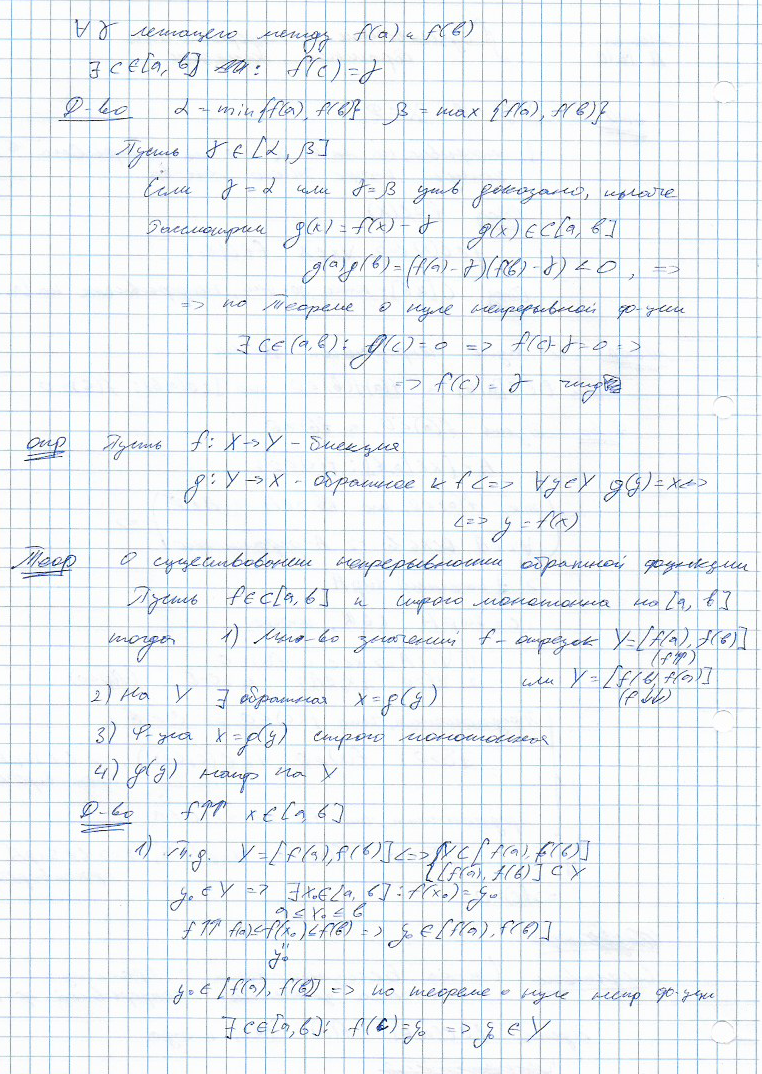 ∀ γ лежащего между f(a) и f(b)
∃ c ∈ [a, b] : f(c) = γ
Д-во α = min{f(a), f(b)} β = max {f(a), f(b)}
Пусть γ ∈ [α, β]
Если γ = α или γ = β утв доказано, иначе
Рассмотрим g(x) = f(x) - γ g(x) ∈ C[a, b]
g(a)g(b) = (f(a) - γ)(f(b) - γ) < 0 , =>
=> по Теореме о нуле непрерывной ф-ции
∃ c ∈ (a, b) : g(c) = 0 => f(c) - γ = 0 =>
=> f(c) = γ чтд
опр Пусть f : X -> Y - биекция
g : Y -> X - обратное к f <=> ∀y∈Y g(y) = x <=>
<=> y = f(x)
Теор О существовании непрерывности обратной функции
Пусть f ∈ C[a, b] и строго монотонна на [a, b]
тогда 1) Мн-во значений f - отрезок Y = [f(a), f(b)]
(f⇈)
или Y = [f(b), f(a)]
(f⇊)
2) На Y ∃ обратная x = g(y)
3) Ф-ция x = g(y) строго монотонная
4) g(y) непр на Y
Д-во f⇈ x ∈ [a, b]
1) Т.д. Y = [f(a), f(b)] <=> { Y ⊂ [f(a), f(b)]
[f(a), f(b)] ⊂ Y
y₀ ∈ Y => ∃x₀∈[a, b] : f(x₀) = y₀
a ≤ x₀ ≤ b
f⇈ f(a) ≤ f(x₀) ≤ f(b) => y₀ ∈ [f(a), f(b)]
"
y₀
y₀ ∈ [f(a), f(b)] => по теореме о нуле непр ф-ции
∃ c∈[a, b] : f(c) = y₀ => y₀ ∈ Y